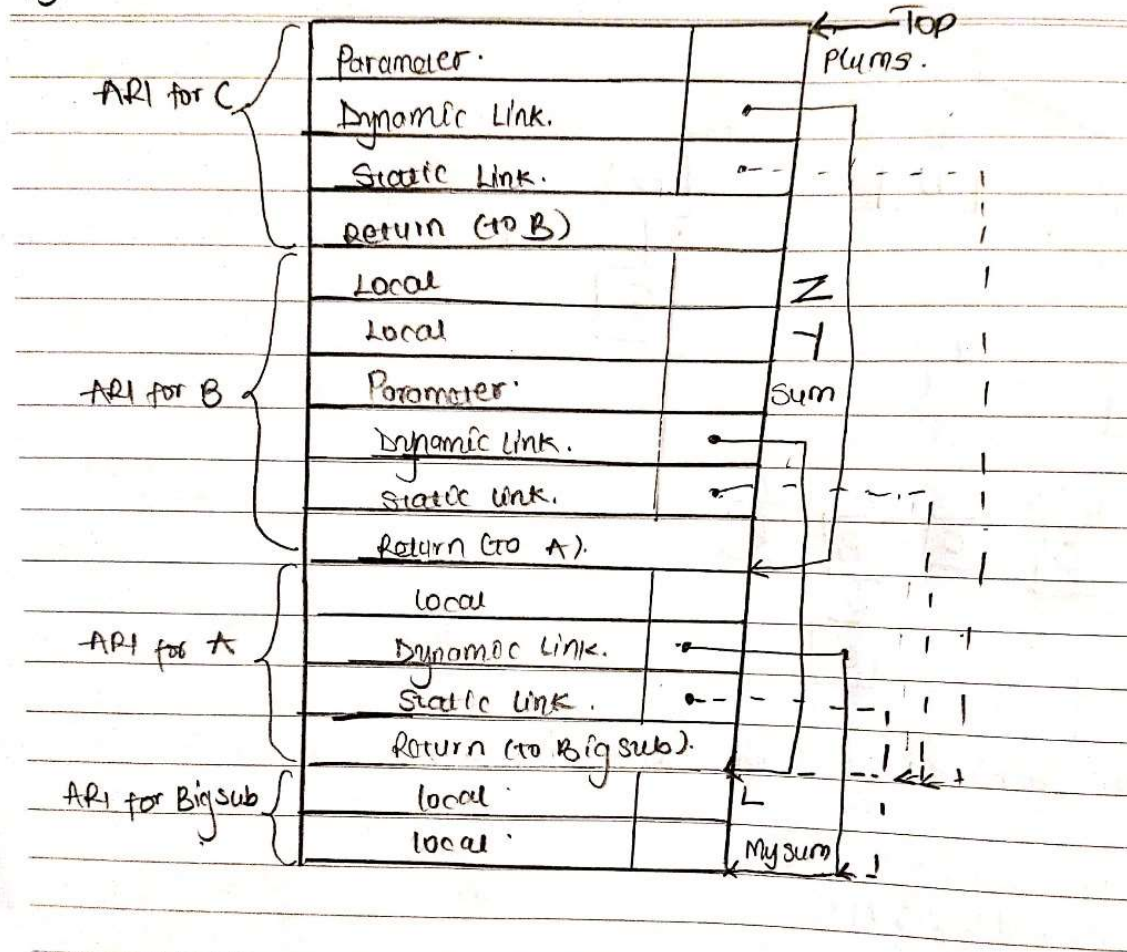 Top
Parameter. Plums.
ARI for C
Dynamic Link.
Static Link.
Return (to B)
Local Z
Local Y
ARI for B Parameter. Sum
Dynamic Link.
Static Link.
Return (to A).
local
ARI for A Dynamic Link.
Static Link.
Return (to Bigsub).
ARI for Bigsub local. L
local. Mysum